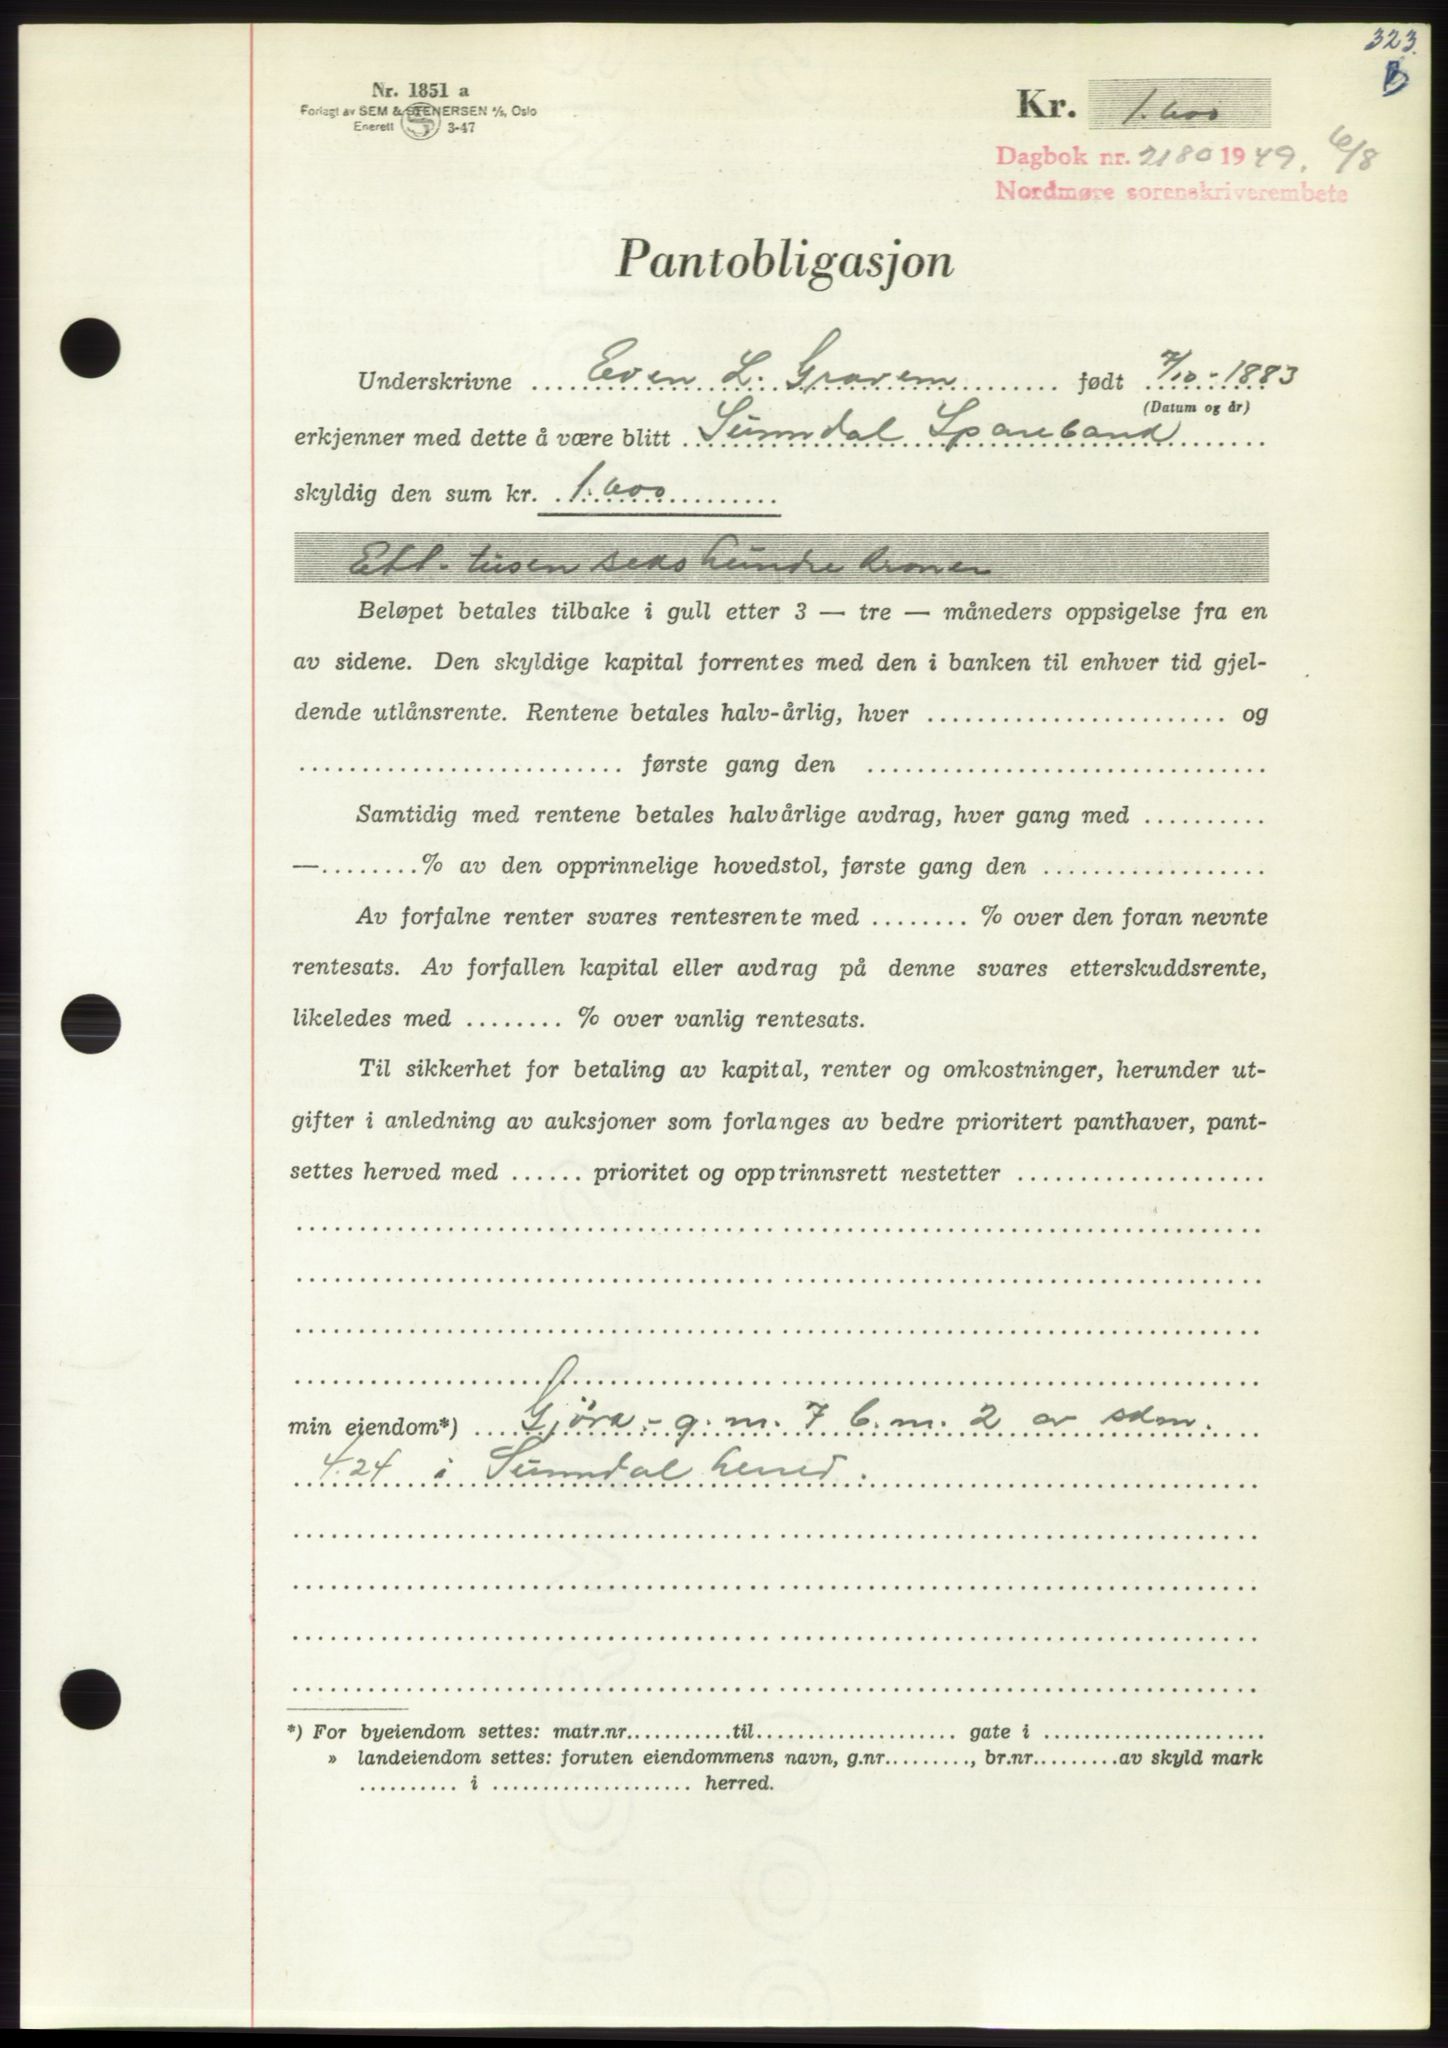 323.
B
Nr. 1851 a
Forlagt av SEM & STENERSEN A/S, Oslo
Enerett 3-47
Kr. 1.600
Dagbok nr. 2180 1949. 6/8
Nordmøre sorenskriverembete
Pantobligasjon
Underskrivne Even L. Gravem født 7/10-1883
(Datum og år)
erkjenner med dette å være blitt Sunndal Sparebank
skyldig den sum kr. 1.600
Ett-tusen seks hundre kroner
Beløpet betales tilbake i gull etter 3 — tre — måneders oppsigelse fra en
av sidene. Den skyldige kapital forrentes med den i banken til enhver tid gjel-
dende utlånsrente. Rentene betales halv-årlig, hver ........................ og
.......................... første gang den ................................
Samtidig med rentene betales halvårlige avdrag, hver gang med ..........
—........% av den opprinnelige hovedstol, første gang den ..................
Av forfalne renter svares rentesrente med ........ % over den foran nevnte
rentesats. Av forfallen kapital eller avdrag på denne svares etterskuddsrente,
likeledes med ........ % over vanlig rentesats.
Til sikkerhet for betaling av kapital, renter og omkostninger, herunder ut-
gifter i anledning av auksjoner som forlanges av bedre prioritert panthaver, pant-
settes herved med ...... prioritet og opptrinnsrett nestetter ....................
min eiendom*) Gjøra - g.nr. 7 b.nr. 2 av skm.
4.24 i Sunndal herred.
*) For byeiendom settes: matr.nr...........til.................... gate i ......................
» landeiendom settes: foruten eiendommens navn, g.nr........., br.nr.........av skyld mark
.......... i .................... herred.